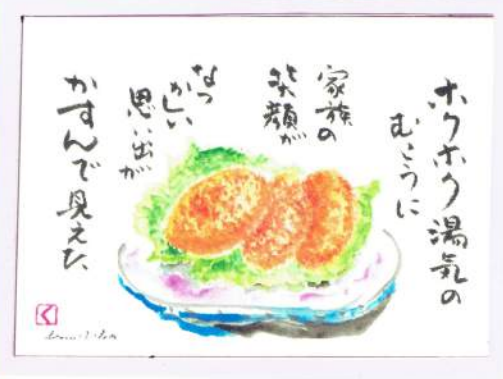 ホクホク湯気の
むこうに
家族の
笑顔が
なつ
かしい
思い出が
かすんで見えた、
く